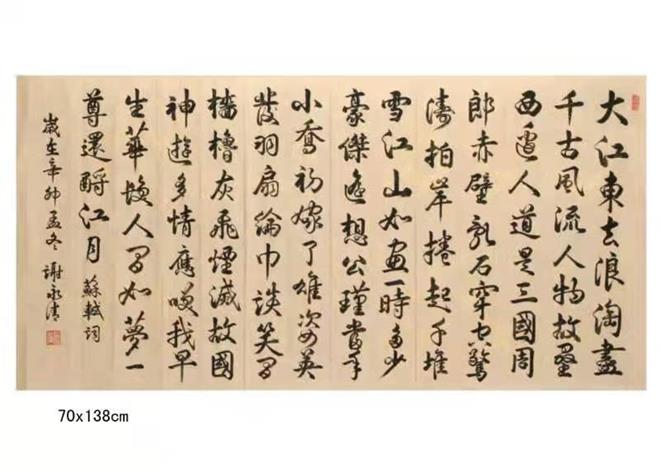 大江東去浪淘盡
千古風流人物故壘
西邊人道是三國周
郎赤壁乱石穿空驚
濤拍岸捲起千堆
雪江山如畫一時多少
豪傑遙想公瑾當年
小喬初嫁了雄姿英
發羽扇綸巾談笑間
檣櫓灰飛煙滅故國
神遊多情應笑我早
生華髮人間如夢一
尊還酹江月 蘇軾詞
歲在辛卯孟冬 謝永清
70x138cm